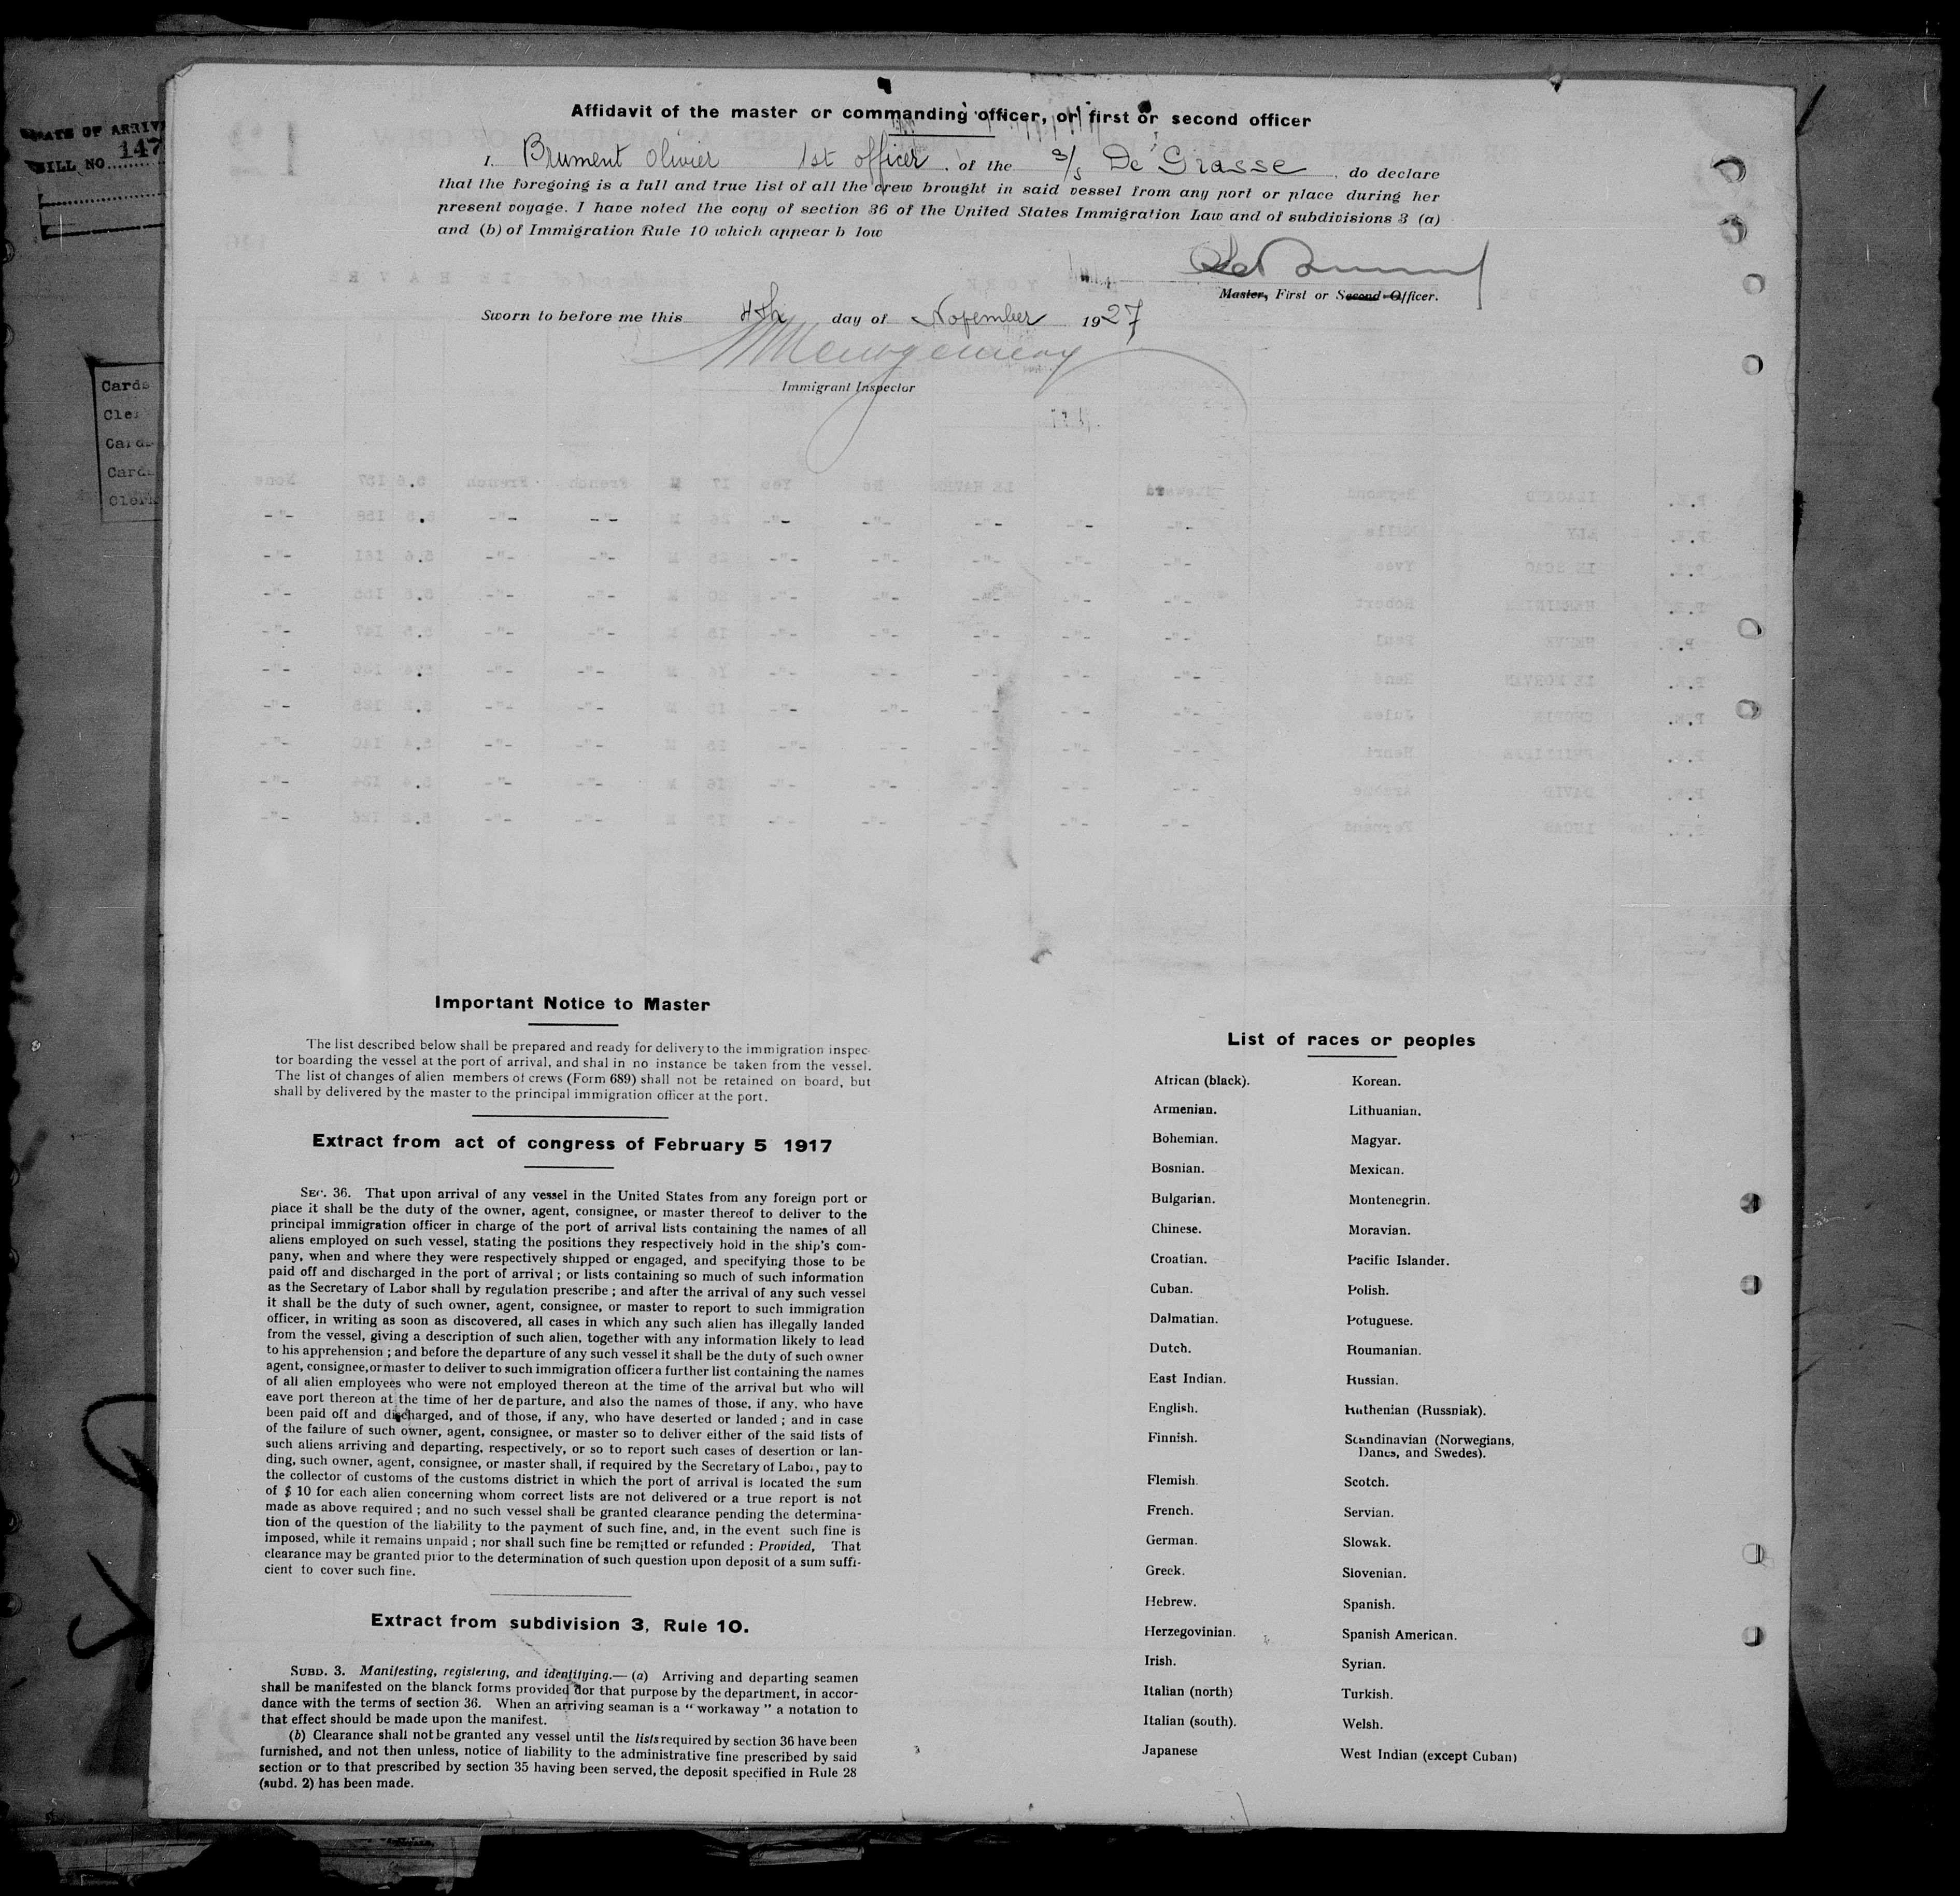 Affidavit of the master or commanding officer, or first or second officer
I. Brument Olivier 1st officer of the S/S De Grasse, do declare
that the foregoing is a full and true list of all the crew brought in said vessel from any port or place during her
present voyage. I have noted the copy of section 36 of the United States Immigration Law and of subdivisions 3 (a)
and (b) of Immigration Rule 10 which appear b low
Master, First or Second Officer.
Sworn to before me this 4th day of November 1927
Immigrant Inspector
BILL NO. 147
Cards
Important Notice to Master
The list described below shall be prepared and ready for delivery to the immigration inspec-
tor boarding the vessel at the port of arrival, and shal in no instance be taken from the vessel.
The list of changes of alien members of crews (Form 689) shall not be retained on board, but
shall by delivered by the master to the principal immigration officer at the port.
Extract from act of congress of February 5 1917
SEC. 36. That upon arrival of any vessel in the United States from any foreign port or
place it shall be the duty of the owner, agent, consignee, or master thereof to deliver to the
principal immigration officer in charge of the port of arrival lists containing the names of all
aliens employed on such vessel, stating the positions they respectively hold in the ship's com-
pany, when and where they were respectively shipped or engaged, and specifying those to be
paid off and discharged in the port of arrival ; or lists containing so much of such information
as the Secretary of Labor shall by regulation prescribe ; and after the arrival of any such vessel
it shall be the duty of such owner, agent, consignee, or master to report to such immigration
officer, in writing as soon as discovered, all cases in which any such alien has illegally landed
from the vessel, giving a description of such alien, together with any information likely to lead
to his apprehension ; and before the departure of any such vessel it shall be the duty of such owner
agent, consignee, or master to deliver to such immigration officer a further list containing the names
of all alien employees who were not employed thereon at the time of the arrival but who will
eave port thereon at the time of her departure, and also the names of those, if any, who have
been paid off and discharged, and of those, if any, who have deserted or landed ; and in case
of the failure of such owner, agent, consignee, or master so to deliver either of the said lists of
such aliens arriving and departing, respectively, or so to report such cases of desertion or lan-
ding, such owner, agent, consignee, or master shall, if required by the Secretary of Labor, pay to
the collector of customs of the customs district in which the port of arrival is located the sum
of $ 10 for each alien concerning whom correct lists are not delivered or a true report is not
made as above required ; and no such vessel shall be granted clearance pending the determina-
tion of the question of the liability to the payment of such fine, and, in the event such fine is
imposed, while it remains unpaid ; nor shall such fine be remitted or refunded : Provided, That
clearance may be granted prior to the determination of such question upon deposit of a sum suffi-
cient to cover such fine.
Extract from subdivision 3, Rule 10.
SUBD. 3. Manifesting, registering, and identifying.— (a) Arriving and departing seamen
shall be manifested on the blanck forms provided dor that purpose by the department, in accor-
dance with the terms of section 36. When an arriving seaman is a “ workaway ” a notation to
that effect should be made upon the manifest.
(b) Clearance shall not be granted any vessel until the lists required by section 36 have been
furnished, and not then unless, notice of liability to the administrative fine prescribed by said
section or to that prescribed by section 35 having been served, the deposit specified in Rule 28
(subd. 2) has been made.
List of races or peoples
African (black). Korean.
Armenian. Lithuanian.
Bohemian. Magyar.
Bosnian. Mexican.
Bulgarian. Montenegrin.
Chinese. Moravian.
Croatian. Pacific Islander.
Cuban. Polish.
Dalmatian. Potuguese.
Dutch. Roumanian.
East Indian. Russian.
English. Ruthenian (Russniak).
Finnish. Scandinavian (Norwegians,
Danes, and Swedes).
Flemish. Scotch.
French. Servian.
German. Slowak.
Greek. Slovenian.
Hebrew. Spanish.
Herzegovinian. Spanish American.
Irish. Syrian.
Italian (north) Turkish.
Italian (south). Welsh.
Japanese West Indian (except Cuban)